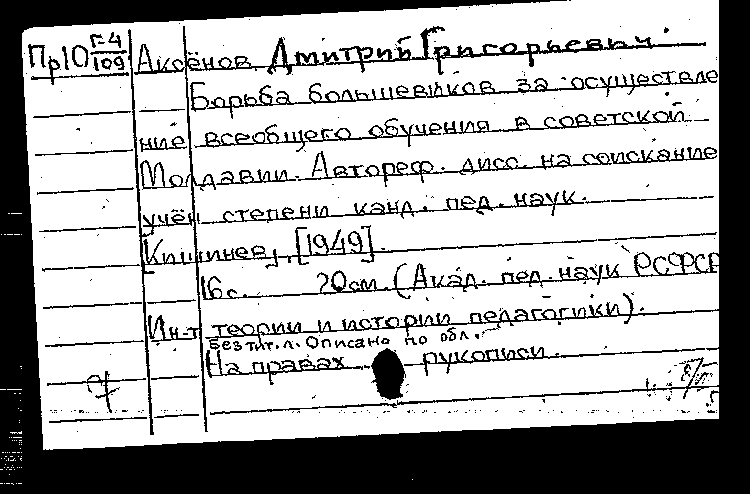 Пр10 Г-4/109 Аксёнов, Дмитрий Григорьевич.
Борьба большевиков за осуществле
ние всеобщего обучения в советской
Молдавии. Автореф. дисс. на соискание
учён степени канд. пед. наук.
Кишинев, [1949].
16 с. 20 см. (Акад. пед. наук РСФСР
Ин-т теории и истории педагогики).
Без тит. л. Описано по обл.
На правах рукописи.